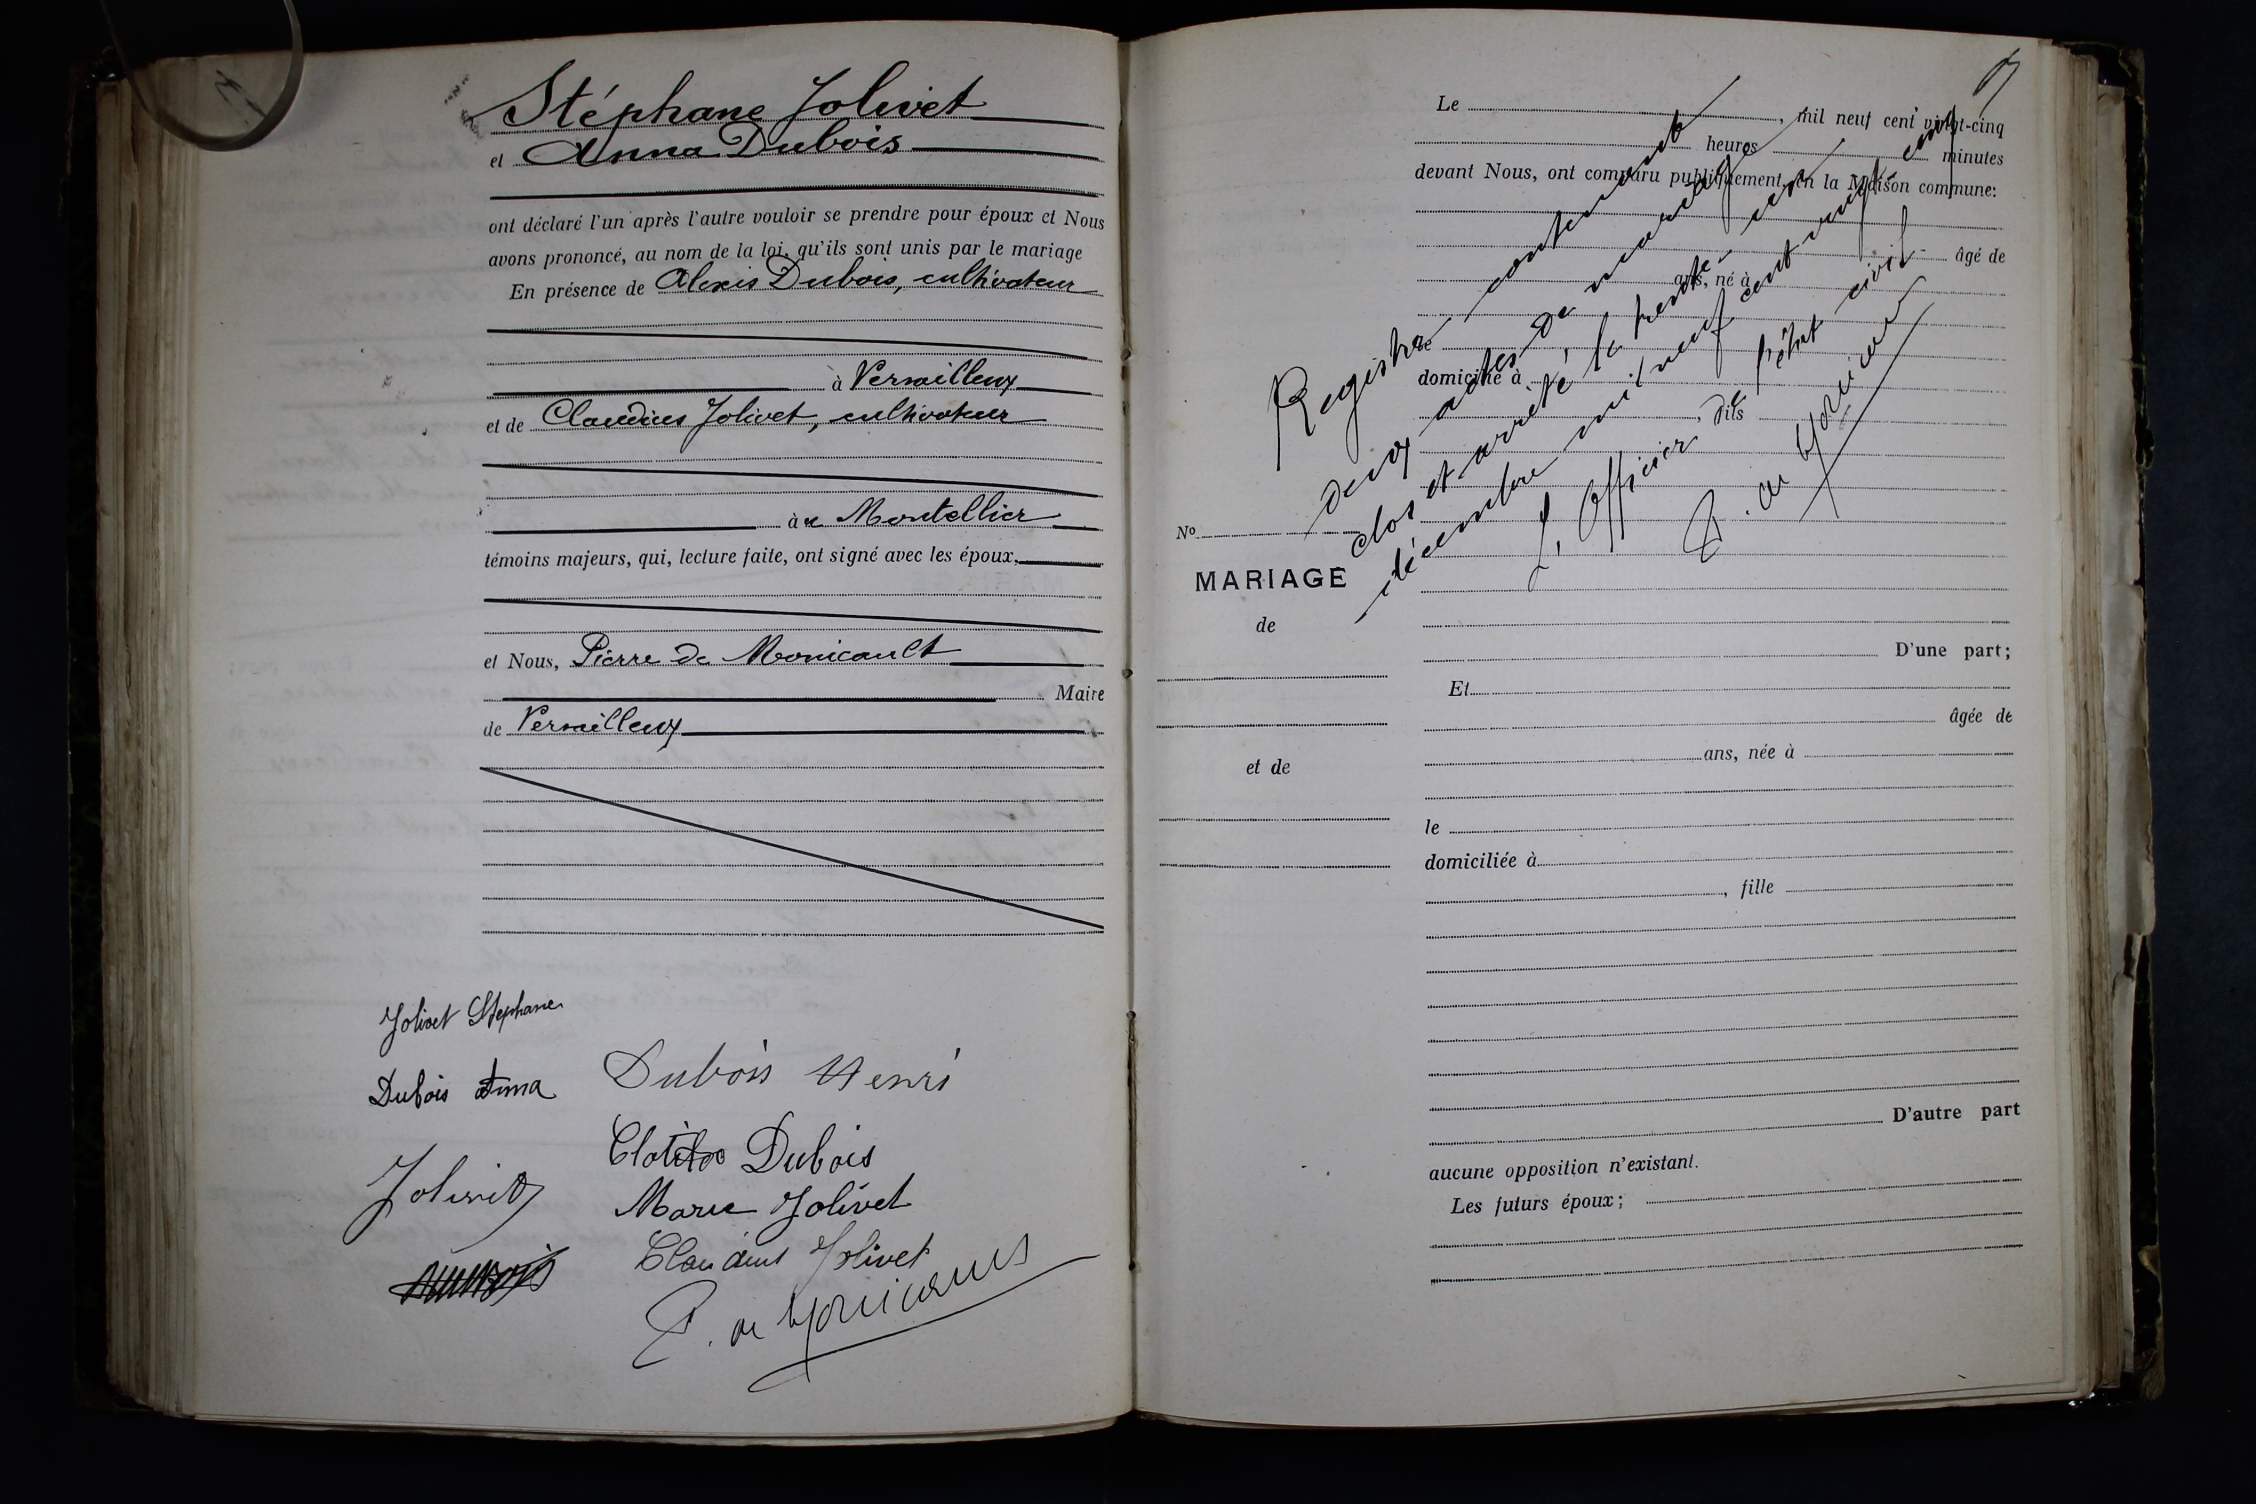 Stéphane Jolivet
et Anna Dubois
ont déclaré l'un après l'autre vouloir se prendre pour époux et Nous
avons prononcé, au nom de la loi, qu'ils sont unis par le mariage
En présence de Alexis Dubois, cultivateur
à Versailleux
et de Claudius Jolivet, cultivateur
à u Montellier
témoins majeurs, qui, lecture faite, ont signé avec les époux,
et Nous, Pierre de Monicault
Maire
de Versailleux
Jolivet Stephane
Dubois Anna
Dubois Henri
Clotilde Dubois
Jolivet
Marie Jolivet
Claudius Jolivet
P. de Monicault
Le , mil neuf cent vingt-cinq
heures minutes
devant Nous, ont comparu publiquement en la Maison commune:
âgé de
ans, né à
le
domicilié à
, fils
Registre contenant
deux actes de mariage
clos et arrêté le trente-un
décembre mil neuf cent vingt-cinq
L'Officier de l'état civil
P. de Monicault
No
MARIAGE
de
et de
D'une part;
Et
âgée de
ans, née à
le
domiciliée à
, fille
D'autre part
aucune opposition n'existant.
Les futurs époux;